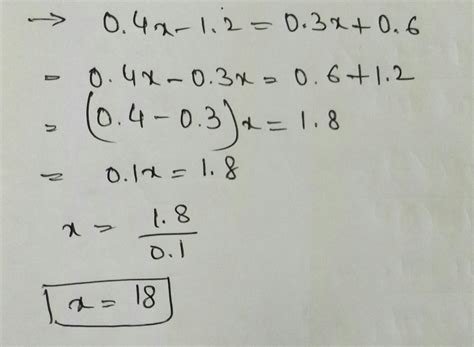 → 0.4x - 1.2 = 0.3x + 0.6
= 0.4x - 0.3x = 0.6 + 1.2
= (0.4 - 0.3)x = 1.8
= 0.1x = 1.8
x = 1.8/0.1
x = 18